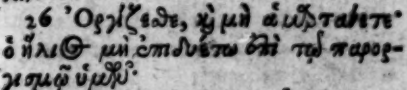 26 Ὀργίζεσθε, καὶ μὴ ἁμαρτάνετε·
ὁ ἥλιος μὴ ἐπιδυέτω ἐπὶ τῷ παρορ-
γισμῷ ὑμῶν·